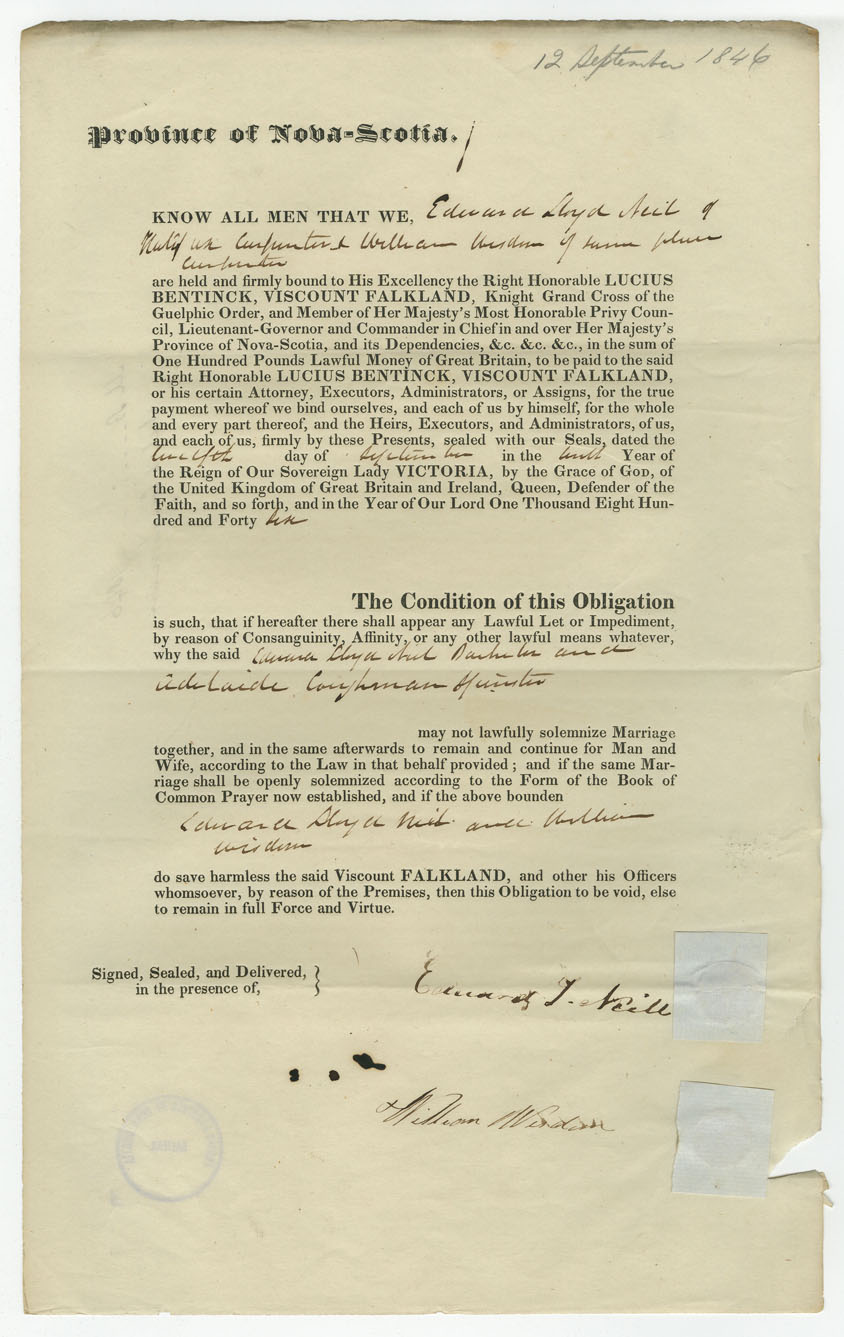 12 September 1846
Province of Nova-Scotia.
KNOW ALL MEN THAT WE, Edward Lloyd Neil of
Halifax Carpenter & William Wisdom of same place
Carpenter
are held and firmly bound to His Excellency the Right Honorable LUCIUS
BENTINCK, VISCOUNT FALKLAND, Knight Grand Cross of the
Guelphic Order, and Member of Her Majesty's Most Honorable Privy Coun-
cil, Lieutenant-Governor and Commander in Chief in and over Her Majesty's
Province of Nova-Scotia, and its Dependencies, &c. &c. &c., in the sum of
One Hundred Pounds Lawful Money of Great Britain, to be paid to the said
Right Honorable LUCIUS BENTINCK, VISCOUNT FALKLAND,
or his certain Attorney, Executors, Administrators, or Assigns, for the true
payment whereof we bind ourselves, and each of us by himself, for the whole
and every part thereof, and the Heirs, Executors, and Administrators, of us,
and each of us, firmly by these Presents, sealed with our Seals, dated the
twelfth day of September in the tenth Year of
the Reign of Our Sovereign Lady VICTORIA, by the Grace of God, of
the United Kingdom of Great Britain and Ireland, Queen, Defender of the
Faith, and so forth, and in the Year of Our Lord One Thousand Eight Hun-
dred and Forty six
The Condition of this Obligation
is such, that if hereafter there shall appear any Lawful Let or Impediment,
by reason of Consanguinity, Affinity, or any other lawful means whatever,
why the said Edward Lloyd Neil Bachelor and
Adelaide Spinster
may not lawfully solemnize Marriage
together, and in the same afterwards to remain and continue for Man and
Wife, according to the Law in that behalf provided ; and if the same Mar-
riage shall be openly solemnized according to the Form of the Book of
Common Prayer now established, and if the above bounden
Edward Lloyd Neil and William
Wisdom
do save harmless the said Viscount FALKLAND, and other his Officers
whomsoever, by reason of the Premises, then this Obligation to be void, else
to remain in full Force and Virtue.
Signed, Sealed, and Delivered,
in the presence of,
Edward Neill
William Wisdom